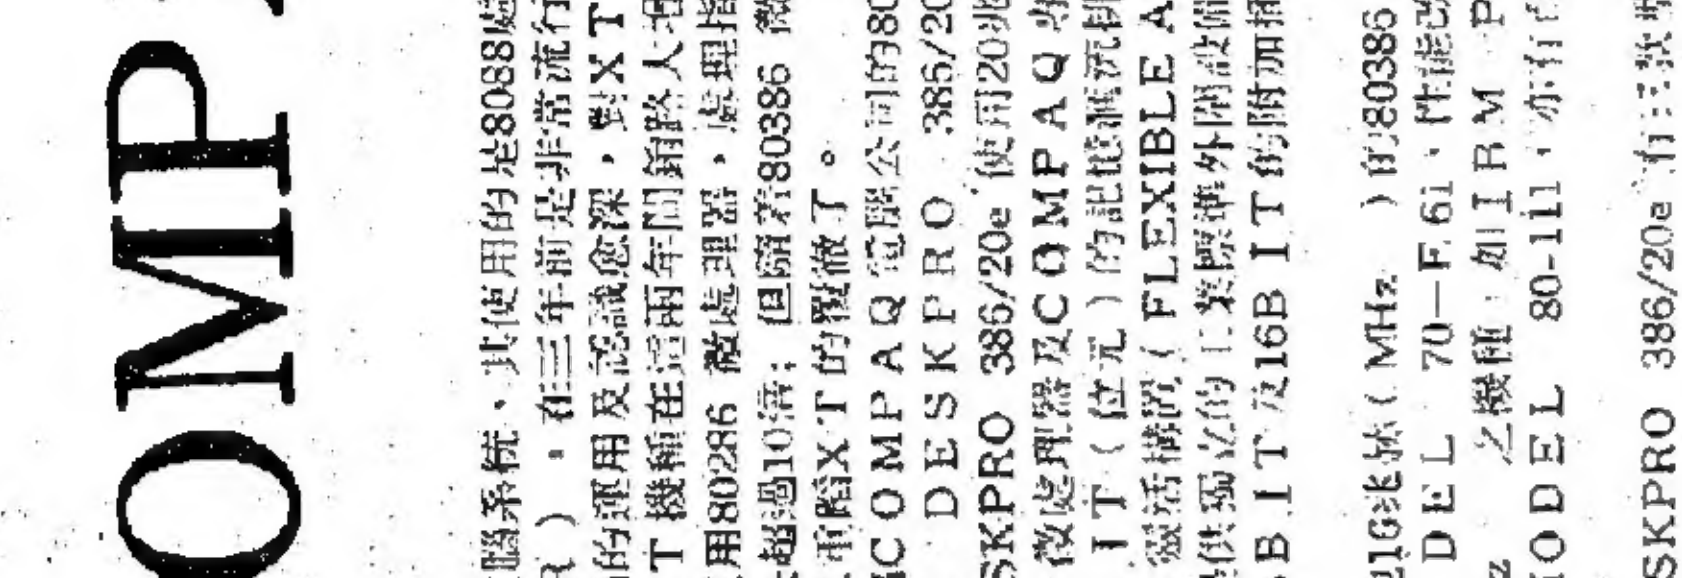 OMP
腦系統、其使用的是8088處
R）。在三年前是非常流行
的運用及認識愈深，對XT
T機種在這兩年間銷路大增
用80286 微處理器，處理指
超過10倍；但隨着80386 微
重蹈XT的覆轍了。
COMPAQ電腦公司的80
DESKPRO 386/20
SKPRO 386/20e 使用20兆
微處理器及COMPAQ
IT（位元）的記憶
靈活構置（FLEXIBLE A
供獨立的工業標準外間設備
BIT及16BIT的附加插
16兆赫（MHz ）的80386
DEL 70—F61、性能
z 之機種；如IBM P
ODEL 80-111，亦有
SKPRO 386/20e 有三款